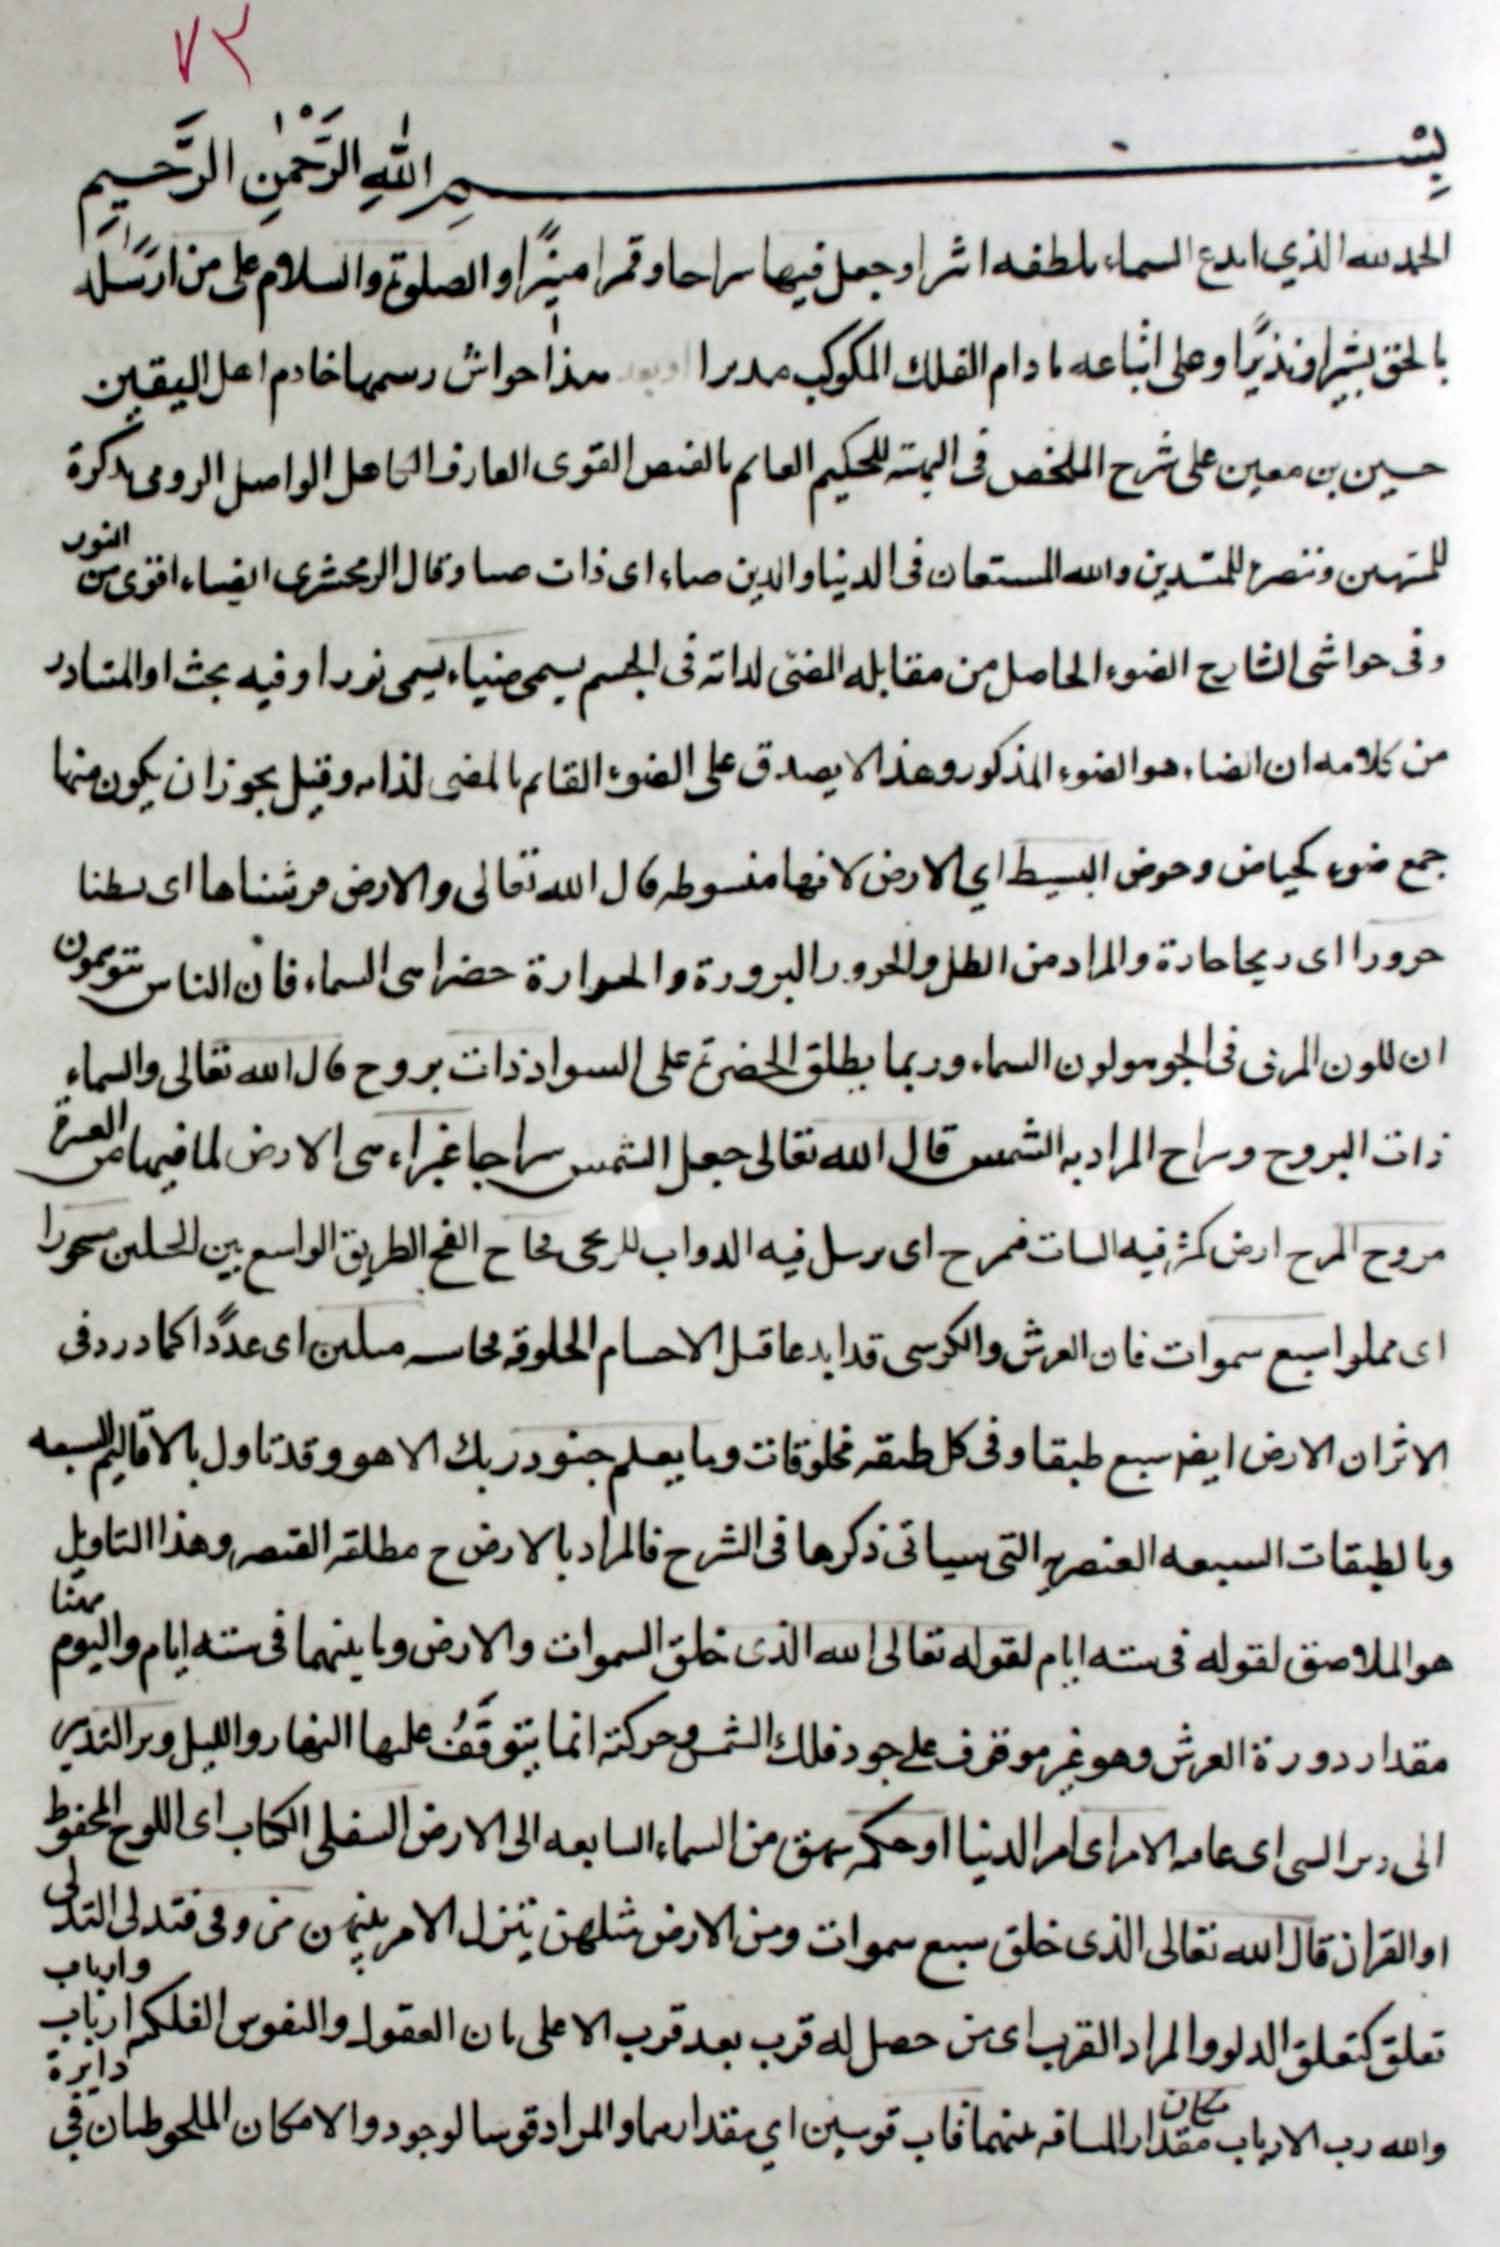 ٧٢
بِسْمِ اللّٰهِ الرَّحْمٰنِ الرَّحِيمِ
الحمد لله الذي ابدع السماء بلطفه اثرا وجعل فيها سراجا وقمرا منيرًا والصلوة والسلام على من ارسله
بالحق بشيرا ونذيرًا وعلى اتباعه ما دام الفلك المكوكب مديرا وبعد هذا حواش رسمها خادم اهل اليقين
حسين بن معين على شرح الملخص فى الهيئة للحكيم العالم بالفيض القوى العارف الكامل الواصل الرومى تذكرة
للمنتهين وتبصرة للمبتدين والله المستعان فى الدنيا والدين ضياء اى ذات ضياء وقال الزمخشرى الضياء اقوى من النور
وفى حواشى الشارح الضوء الحاصل من مقابله المضئ لذاته فى الجسم يسمى ضياء يسمى نورا وفيه بحث اذ المتبادر
من كلامه ان الضياء هو الضوء المذكور وهذا لا يصدق على الضوء القايم بالمضى لذاته وقيل يجوز ان يكون منها
جمع ضوء كحياض وحوض البسيط اي الارض لانها منبسوطه قال الله تعالى والارض فرشناها اى بسطنا
حرورا اى ريحا حارة والمراد من الظل والحرور البرورة والحرارة خضرا هى السماء فان الناس يتوهمون
ان للون المرئى فى الجو هو لون السماء وربما يطلق الخضرة على السواد ذات بروج قال الله تعالى والسماء
ذات البروج وسراج المراد به الشمس قال الله تعالى جعل الشمس سراجا غبراء هى الارض لما فيها من الغبرة
مروج المرج ارض كثر فيه النبات فمرج اى يرسل فيه الدواب للرعى فجاج الفج الطريق الواسع بين الجبلين مسجورا
اى مملوا سبع سموات فان العرش والكرسى قد ابدعا قبل الاجسام المخلوقه اى عددًا كما ورد فى
الاثر ان الارض ايضا سبع طبقا وفى كل طبقه مخلوقات وما يعلم جنود ربك الا هو وقد تاول بالاقاليم السبعه
وبالطبقات السبعه العنصريه التى سياتى ذكرها فى الشرح فالمراد بالارض ح مطلقه العنصر وهذا التاويل
هو الملاصق لقوله فى سته ايام لقوله تعالى الله الذى خلق السموات والارض وما بينهما فى سته ايام واليوم ههنا
مقدار دورة العرش وهو غير موقوف على جود فلك الشمس وحركته انما يَتوقَّفُ عليها النهار والليل وبر التدبير
الى دبر السى اى عامه الامر اى امر الدنيا او حكمه من السماء السابعه الى الارض السفلى الكتاب اى اللوح المحفوظ
او القران قال الله تعالى الذى خلق سبع سموات ومن الارض مثلهن يتنزل الامر بينهن وفى فتدلى التدلى
تعلق كتعلق الدلو والمراد القرب اى من حصل له قرب بعد قرب الاعلى بان العقول والنفوس الفلكيه ارباب وارباب
والله رب الارباب مكان مقدار المسافه بينهما قاب قوسين اي مقدارهما والمراد قوسا لوجود والامكان الملحوظان فى دايرة